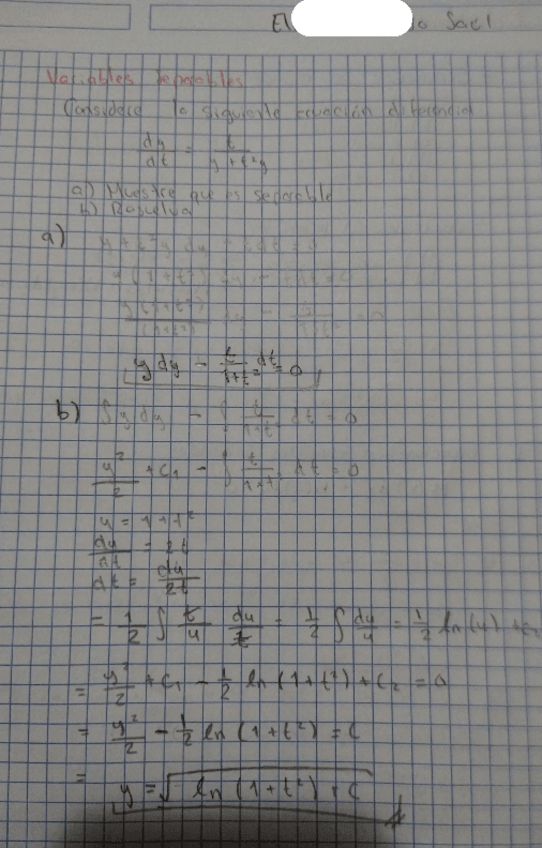 El
io Sael
Variables separables
Considere la siguiente ecuación diferencial
dy/dt = t/(y+t²y)
a) Muestre que es separable
b) Resuelva
a)
y dy - t/(1+t²) dt = 0
b) ∫y dy - ∫ t/(1+t²) dt = 0
y²/2 + C₁ - ∫ t/(1+t²) dt = 0
u = 1+t²
du/dt = 2t
dt = du/2t
= 1/2 ∫ t/u du/t = 1/2 ∫ du/u = 1/2 ln(u) + C₂
= y²/2 + C₁ - 1/2 ln (1+t²) + C₂ = 0
= y²/2 - 1/2 ln (1+t²) = C
= y = √(ln (1+t²) + C)